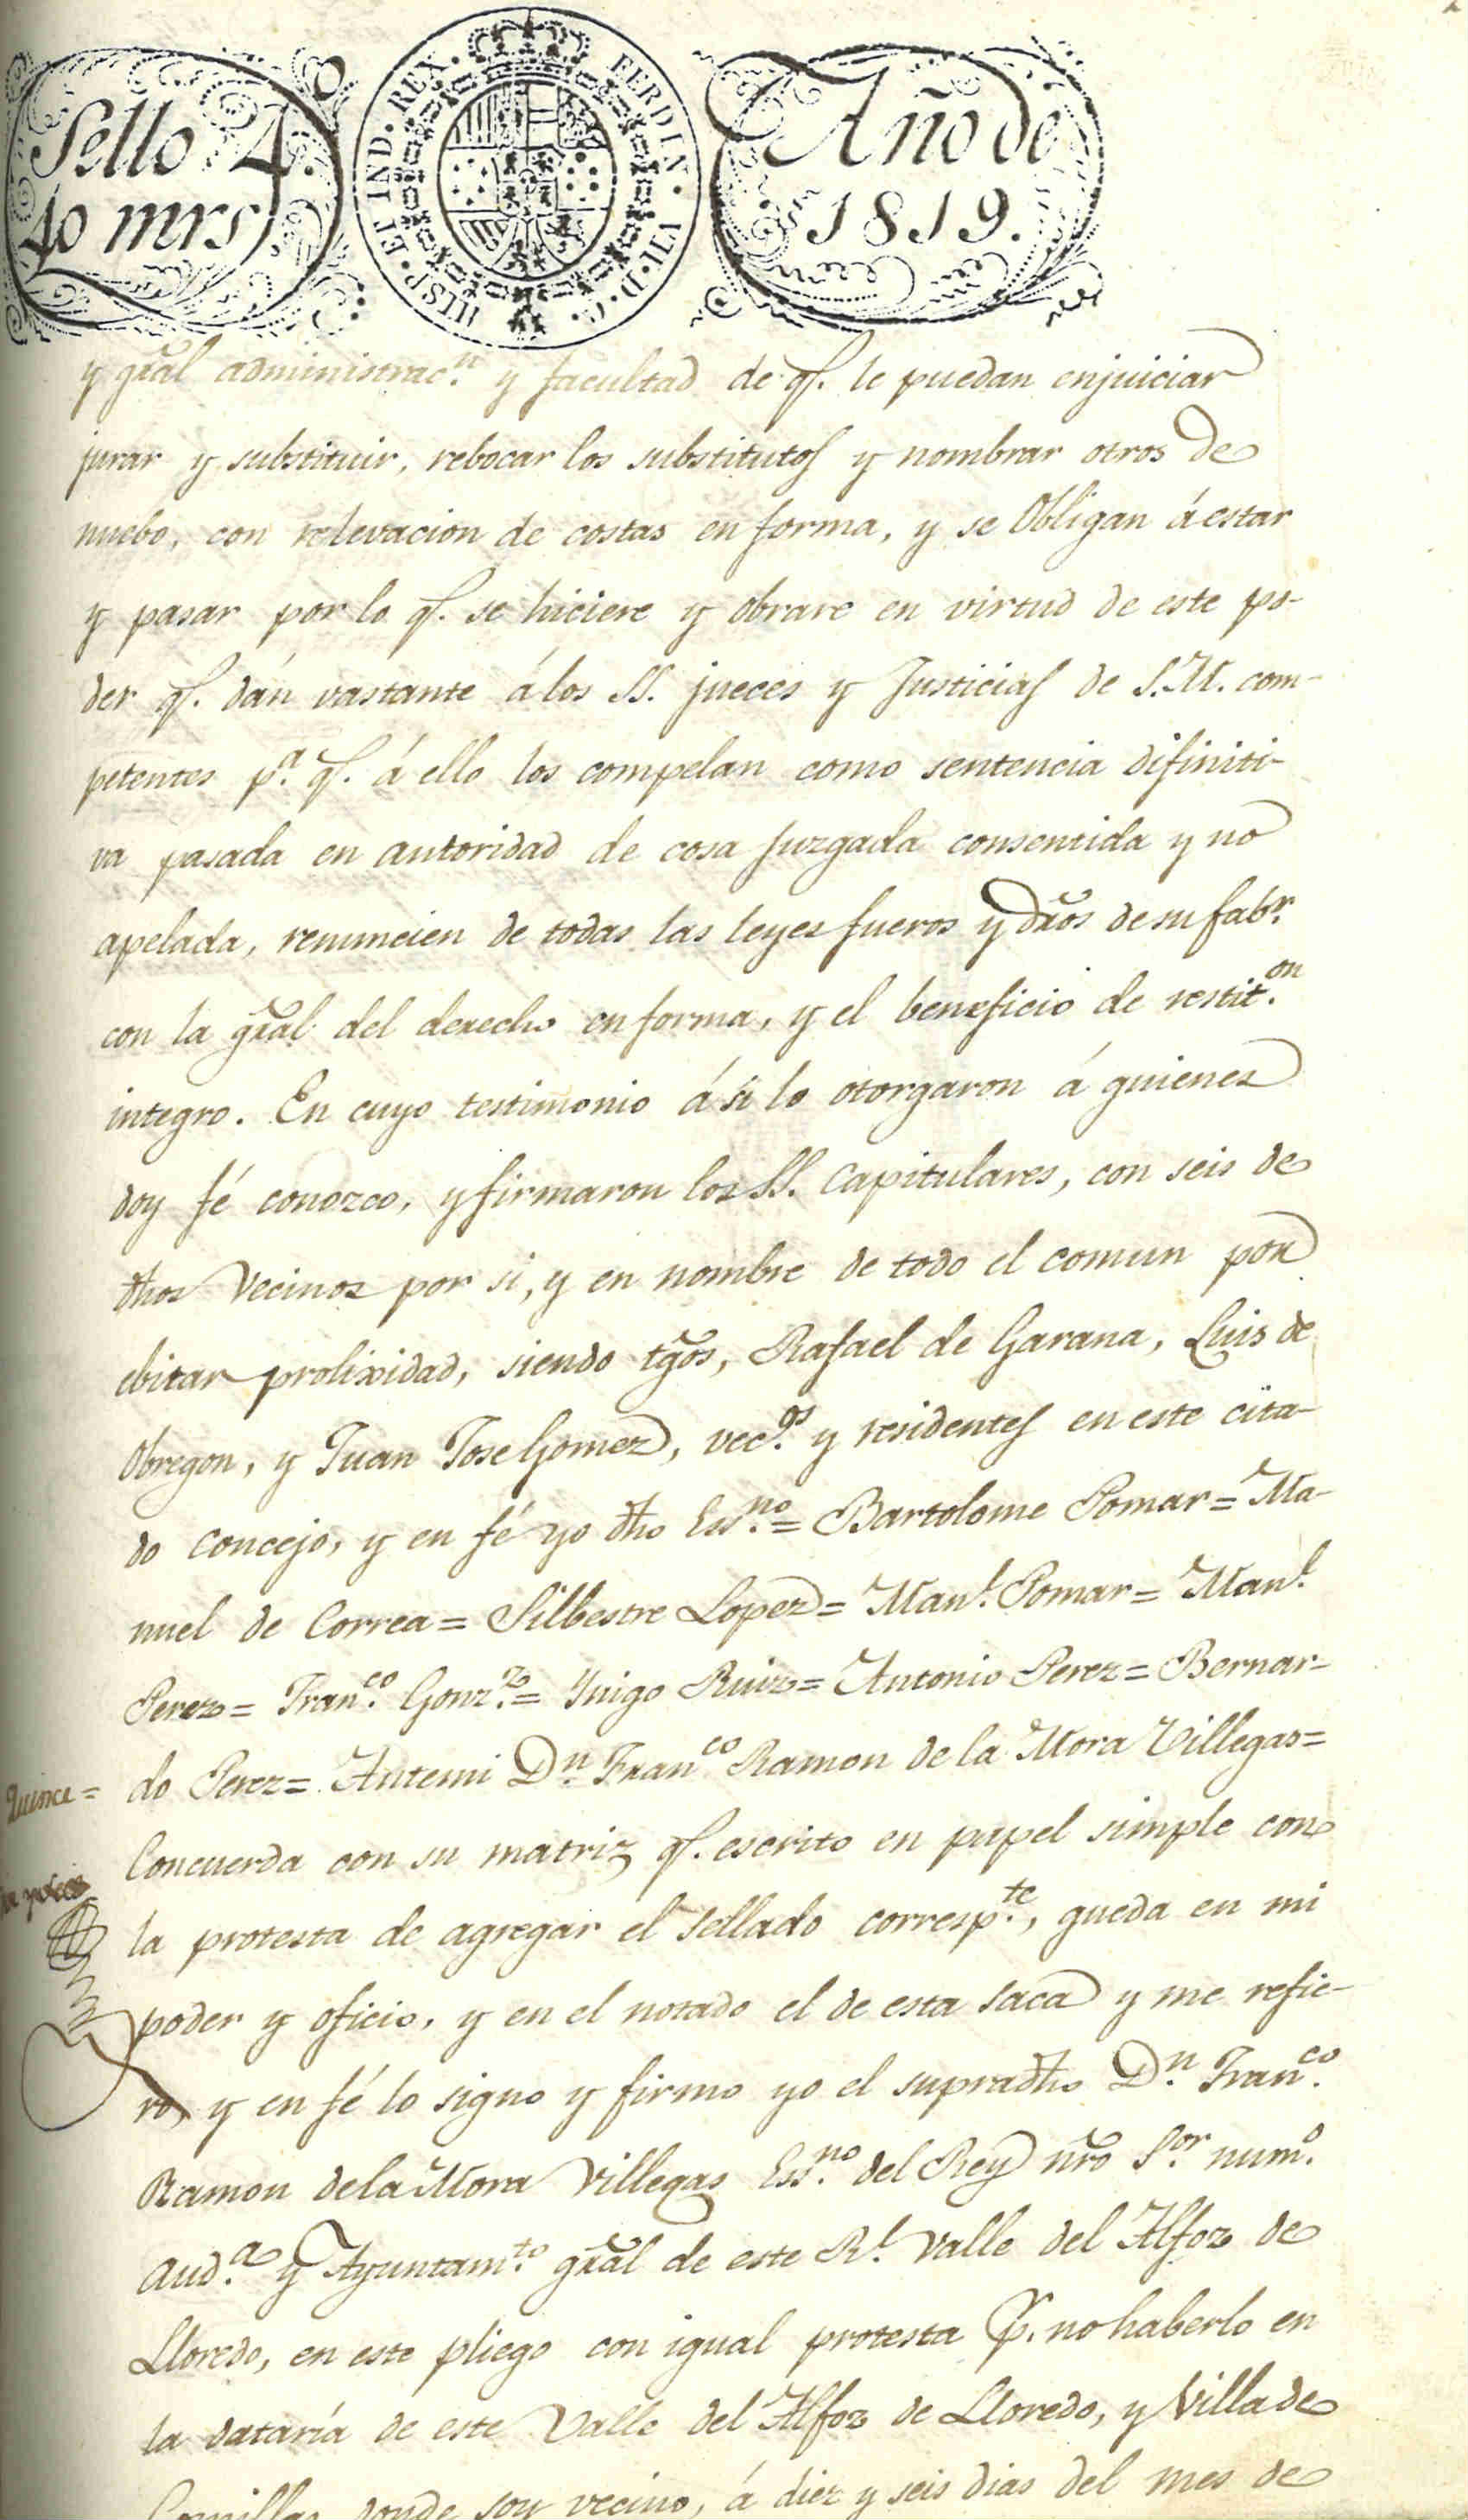 Sello 4.º
40 mrs
HISP. ET IND. REX. FERDIN. VII. D. G.
Año de
1819.
y gral administrac.n y facultad de q.e le puedan enjuiciar
jurar y substituir, rebocar los substitutos y nombrar otros de
nuebo, con relevacion de costas en forma, y se Obligan á estar
y pasar por lo q.e se hiciere y obrare en virtud de este po-
der q.e dán vastante á los SS. jueces y Justicias de S.M. com-
petentes p.a q.e á ello los compelan como sentencia difiniti-
va pasada en autoridad de cosa Juzgada consentida y no
apelada, renuncien de todas las leyes fueros y dros de su fabr.
con la gral del derecho en forma, y el beneficio de restit.on
integro. En cuyo testimonio á si lo otorgaron á quienes
doy fé conozco, y firmaron los SS. Capitulares, con seis de
dhos Vecinos por si, y en nombre de todo el comun por
ebitar prolixidad, siendo tgos, Rafael de Garana, Luis de
Obregon, y Juan Jose Gomez, vec.os y residentes en este cita-
do Concejo, y en fé yo dho Ess.no = Bartolome Pomar = Ma-
nuel de Correa = Silbestre Lopez = Man.l Pomar = Man.l
Perez = Fran.co Gonz.z = Ynigo Ruiz = Antonio Perez = Bernar-
Quince =
do Perez = Antemi D.n Fran.co Ramon de la Mora Villegas =
Concuerda con su matriz q.e escrito en papel simple con
la protesta de agregar el sellado corresp.te, queda en mi
poder y oficio, y en el notado el de esta saca y me refie-
ro, y en fé lo signo y firmo yo el supradho D.n Fran.co
Ramon de la Mora Villegas Ess.no del Rey nro S.or num.o
Aud.a y Ayuntam.to gral de este R.l Valle del Alfoz de
Lloredo, en este pliego con igual protesta p.r no haberlo en
la dataría de este Valle del Alfoz de Lloredo, y Villa de
Comillas donde soy vecino, á diez y seis dias del mes de